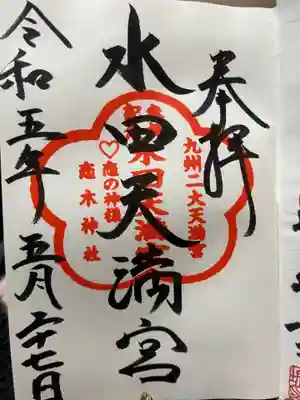 奉拝
九州二大天満宮
水田天満宮
♡恋の神様
恋木神社
令和五年五月二十七日